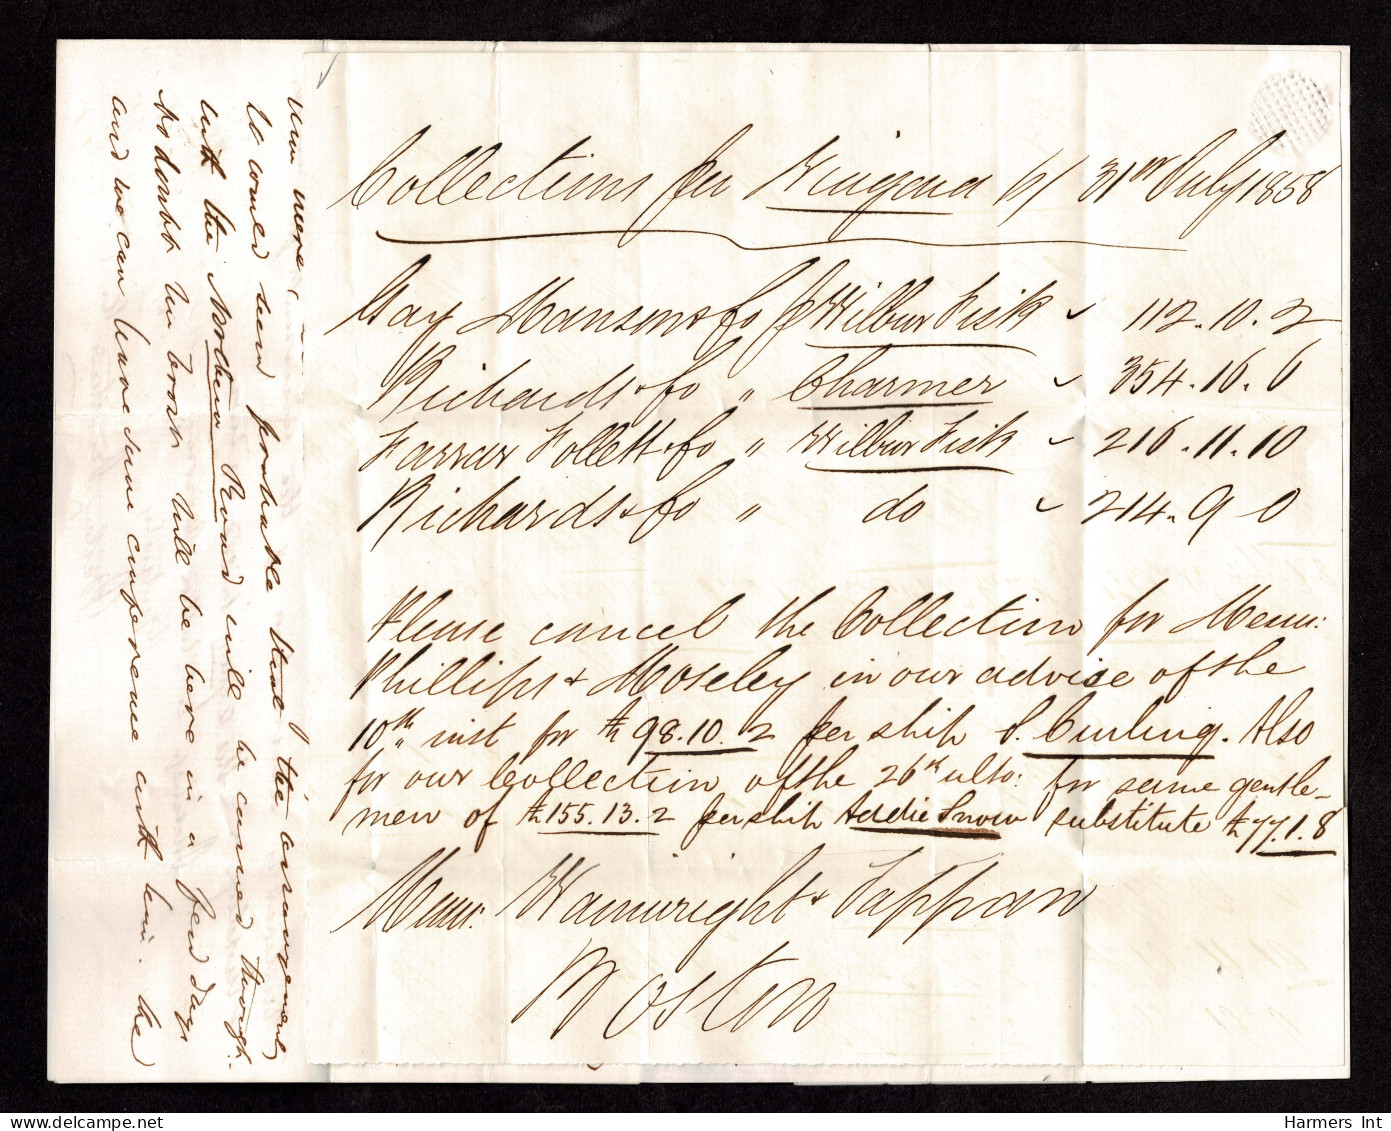 Collections per Niagara 6/ 31st July 1858
Gay Manson & Co p Wilbur Fisk 112.10.2
Richards & Co " Charmer 354.16.6
Farrar Follett & Co " Wilbur Fisk 216.11.10
Richards & Co " do 214.9 0
Please cancel the Collection for Messrs:
Phillips & Moseley in our advise of the
10th inst for £98.10.2 per ship S. Curling. Also
for our Collection of the 26th ulto: for same gentle-
men of £155.13.2 per ship Addie Snow substitute £77.1.8
Messrs: Wainwright & Tappan
Boston
were
would seem probable that the arrangement
with the Northern Road will be carried through.
No doubt Mr will be here in a few days
and we can have some conference with him. he
Harmers Int